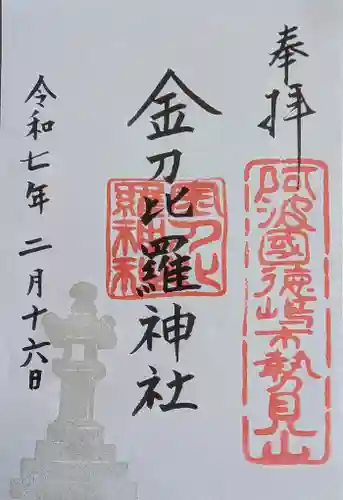 奉拝
阿波國徳嶋市勢見山
金刀比羅神社
金刀比羅神社
令和七年二月十六日